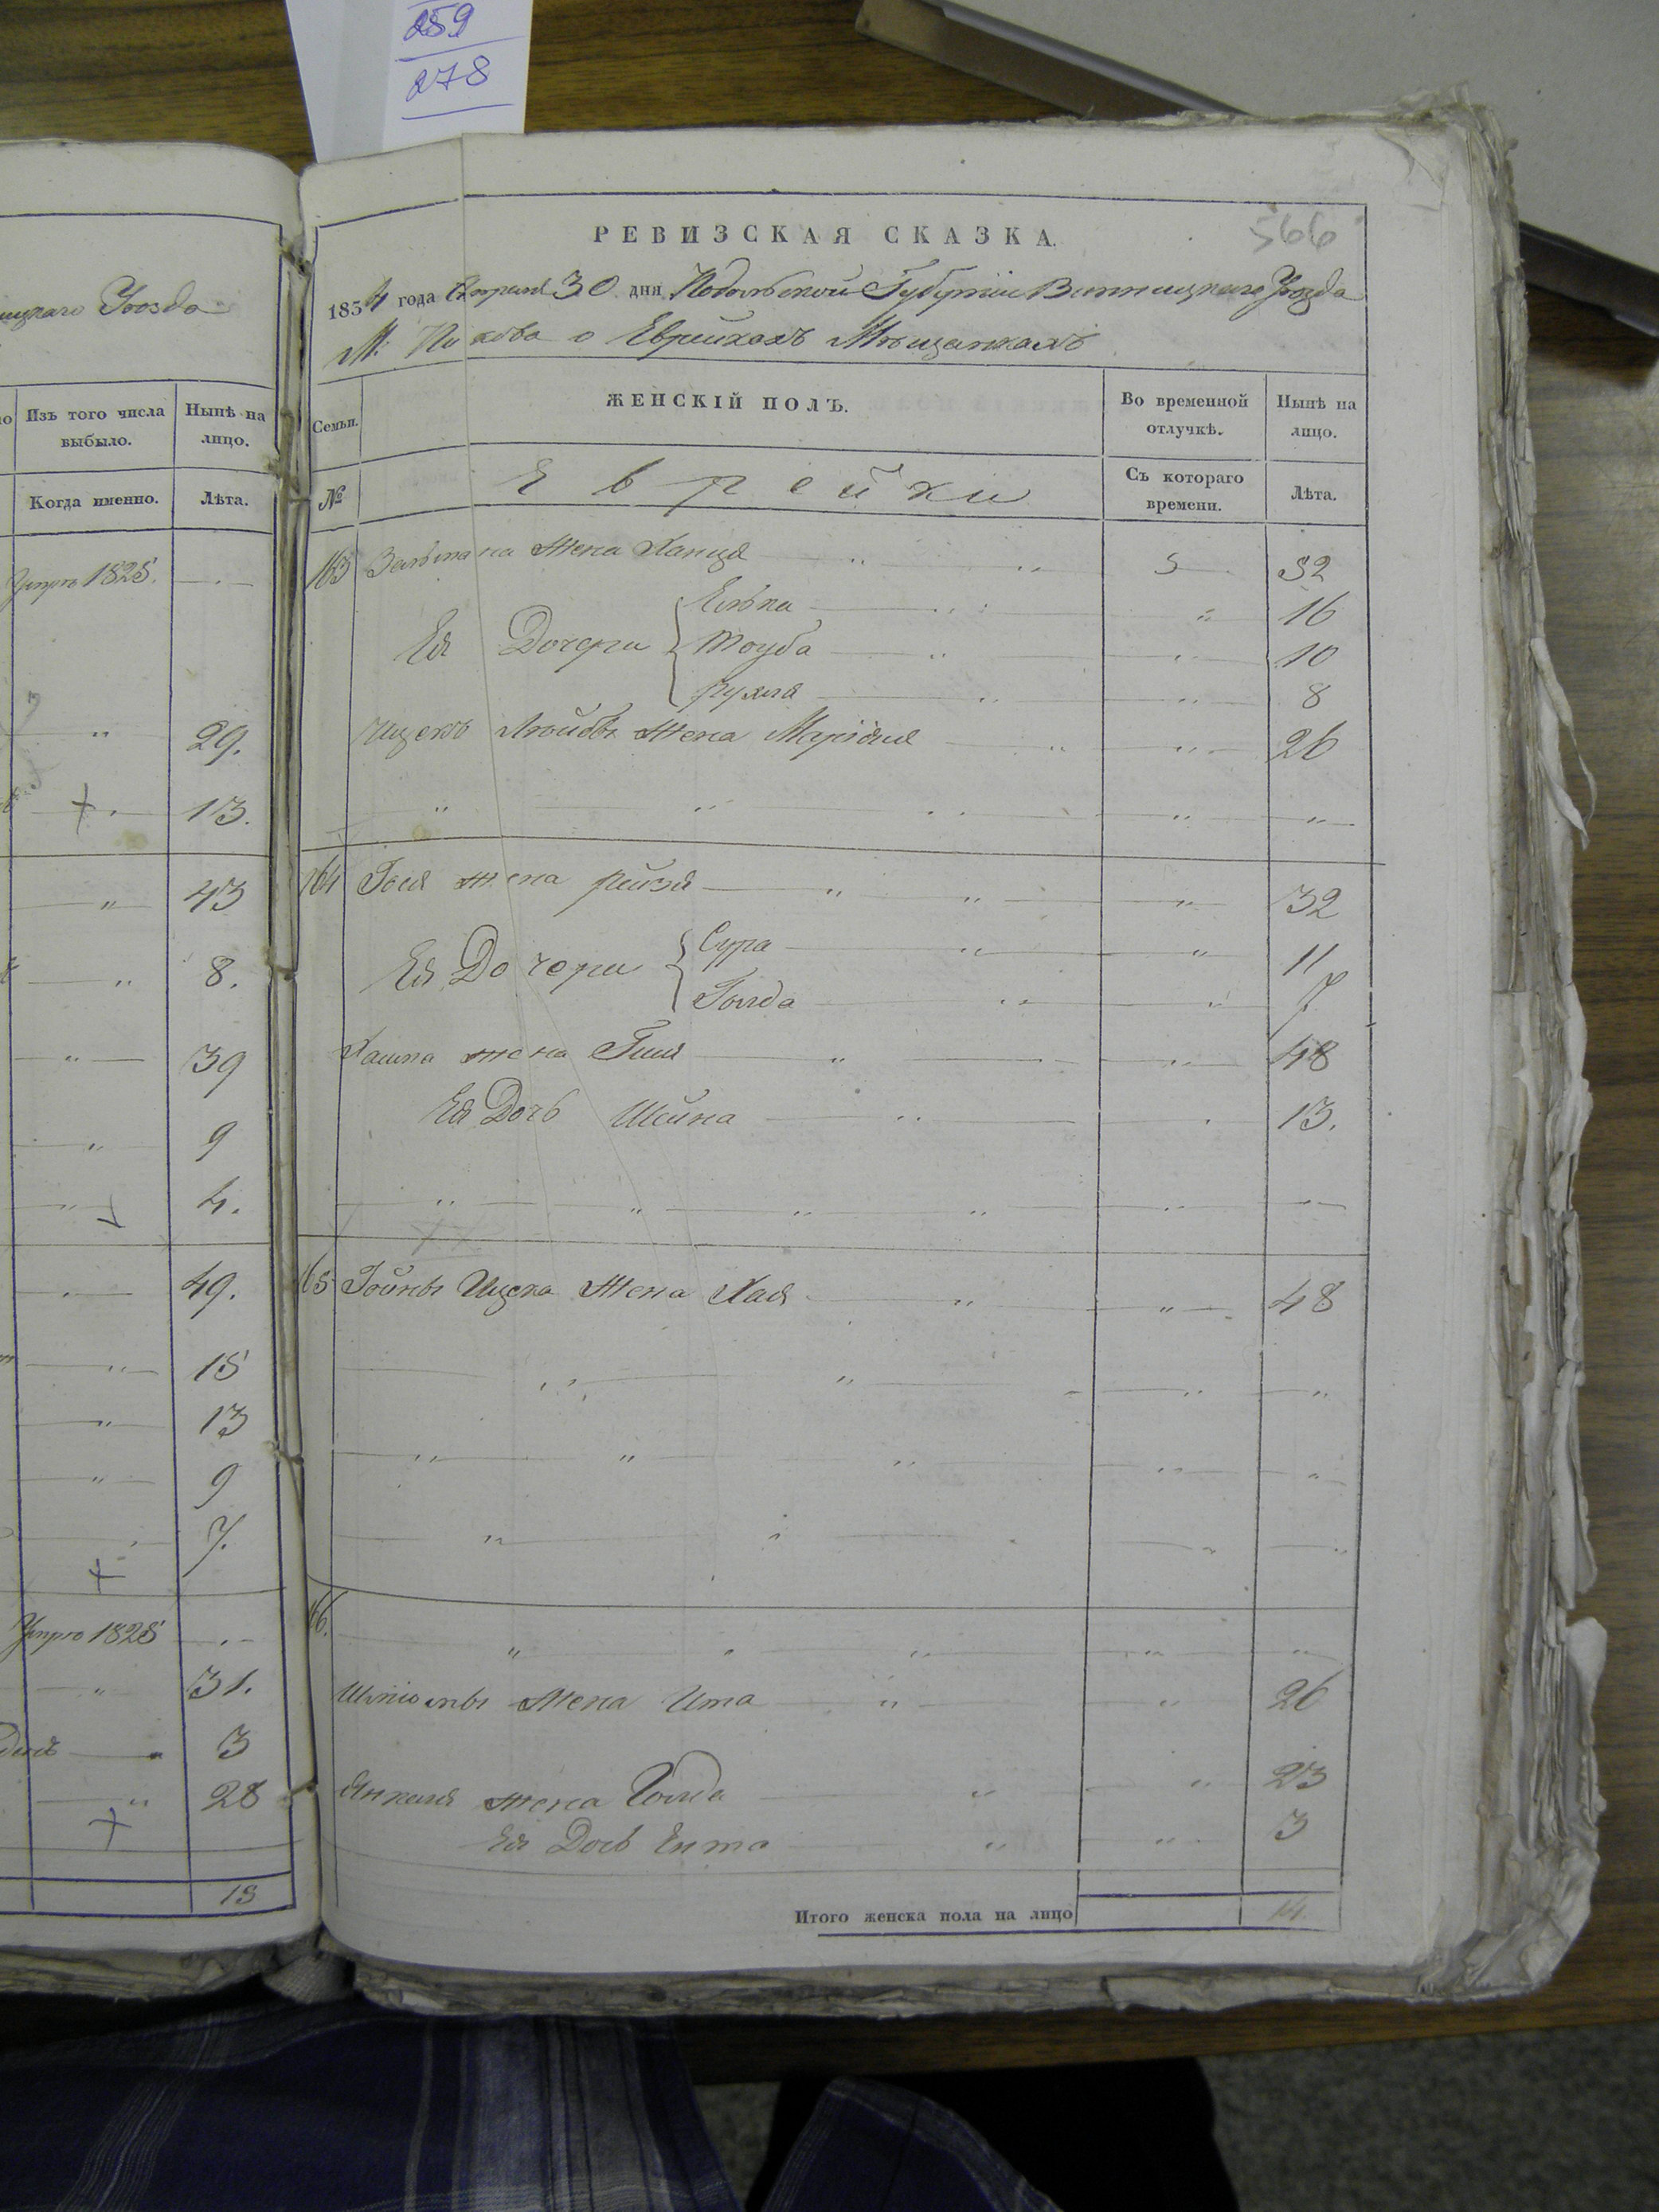 259
278
566
Уѣзда
Изъ того числа выбыло.
Нынѣ на лицо.
Когда именно.
Лѣта.
1828.
29.
13.
43
8.
39
9
4.
49.
15
13
9
7.
1828
31.
3
28
15
РЕВИЗСКАЯ СКАЗКА.
1834 года Апреля 30 дня Подольской Губернiи Винницкаго Уѣзда
М: Пикова о Еврейкахъ Мѣщанкахъ
Семьи.
ЖЕНСКІЙ ПОЛЪ.
Во временной отлучкѣ.
Нынѣ на лицо.
№
Еврейки
Съ котораго времени.
Лѣта.
163 Зельмана Жена Ханця 52
Елька 16
Ея Дочери Тоуба 10
Рухля 8
Жена 26
164 Жена Рейзя 32
Сура 11
Ея Дочери Голда 7
жена 48
Ея Дочь Шейна 13.
165 Ицека Жена Хая 48
166.
Жена Ита 26
Янкеля жена Голда 23
Ея Дочь Ента 3
Итого женска пола на лицо 14.